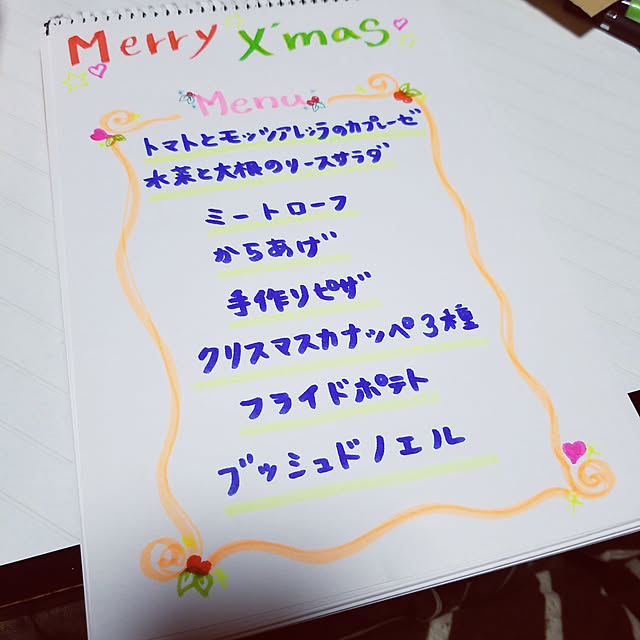 Merry X'mas
Menu
トマトとモッツアレラのカプレーゼ
水菜と大根のリースサラダ
ミートローフ
からあげ
手作りピザ
クリスマスカナッペ3種
フライドポテト
ブッシュドノエル